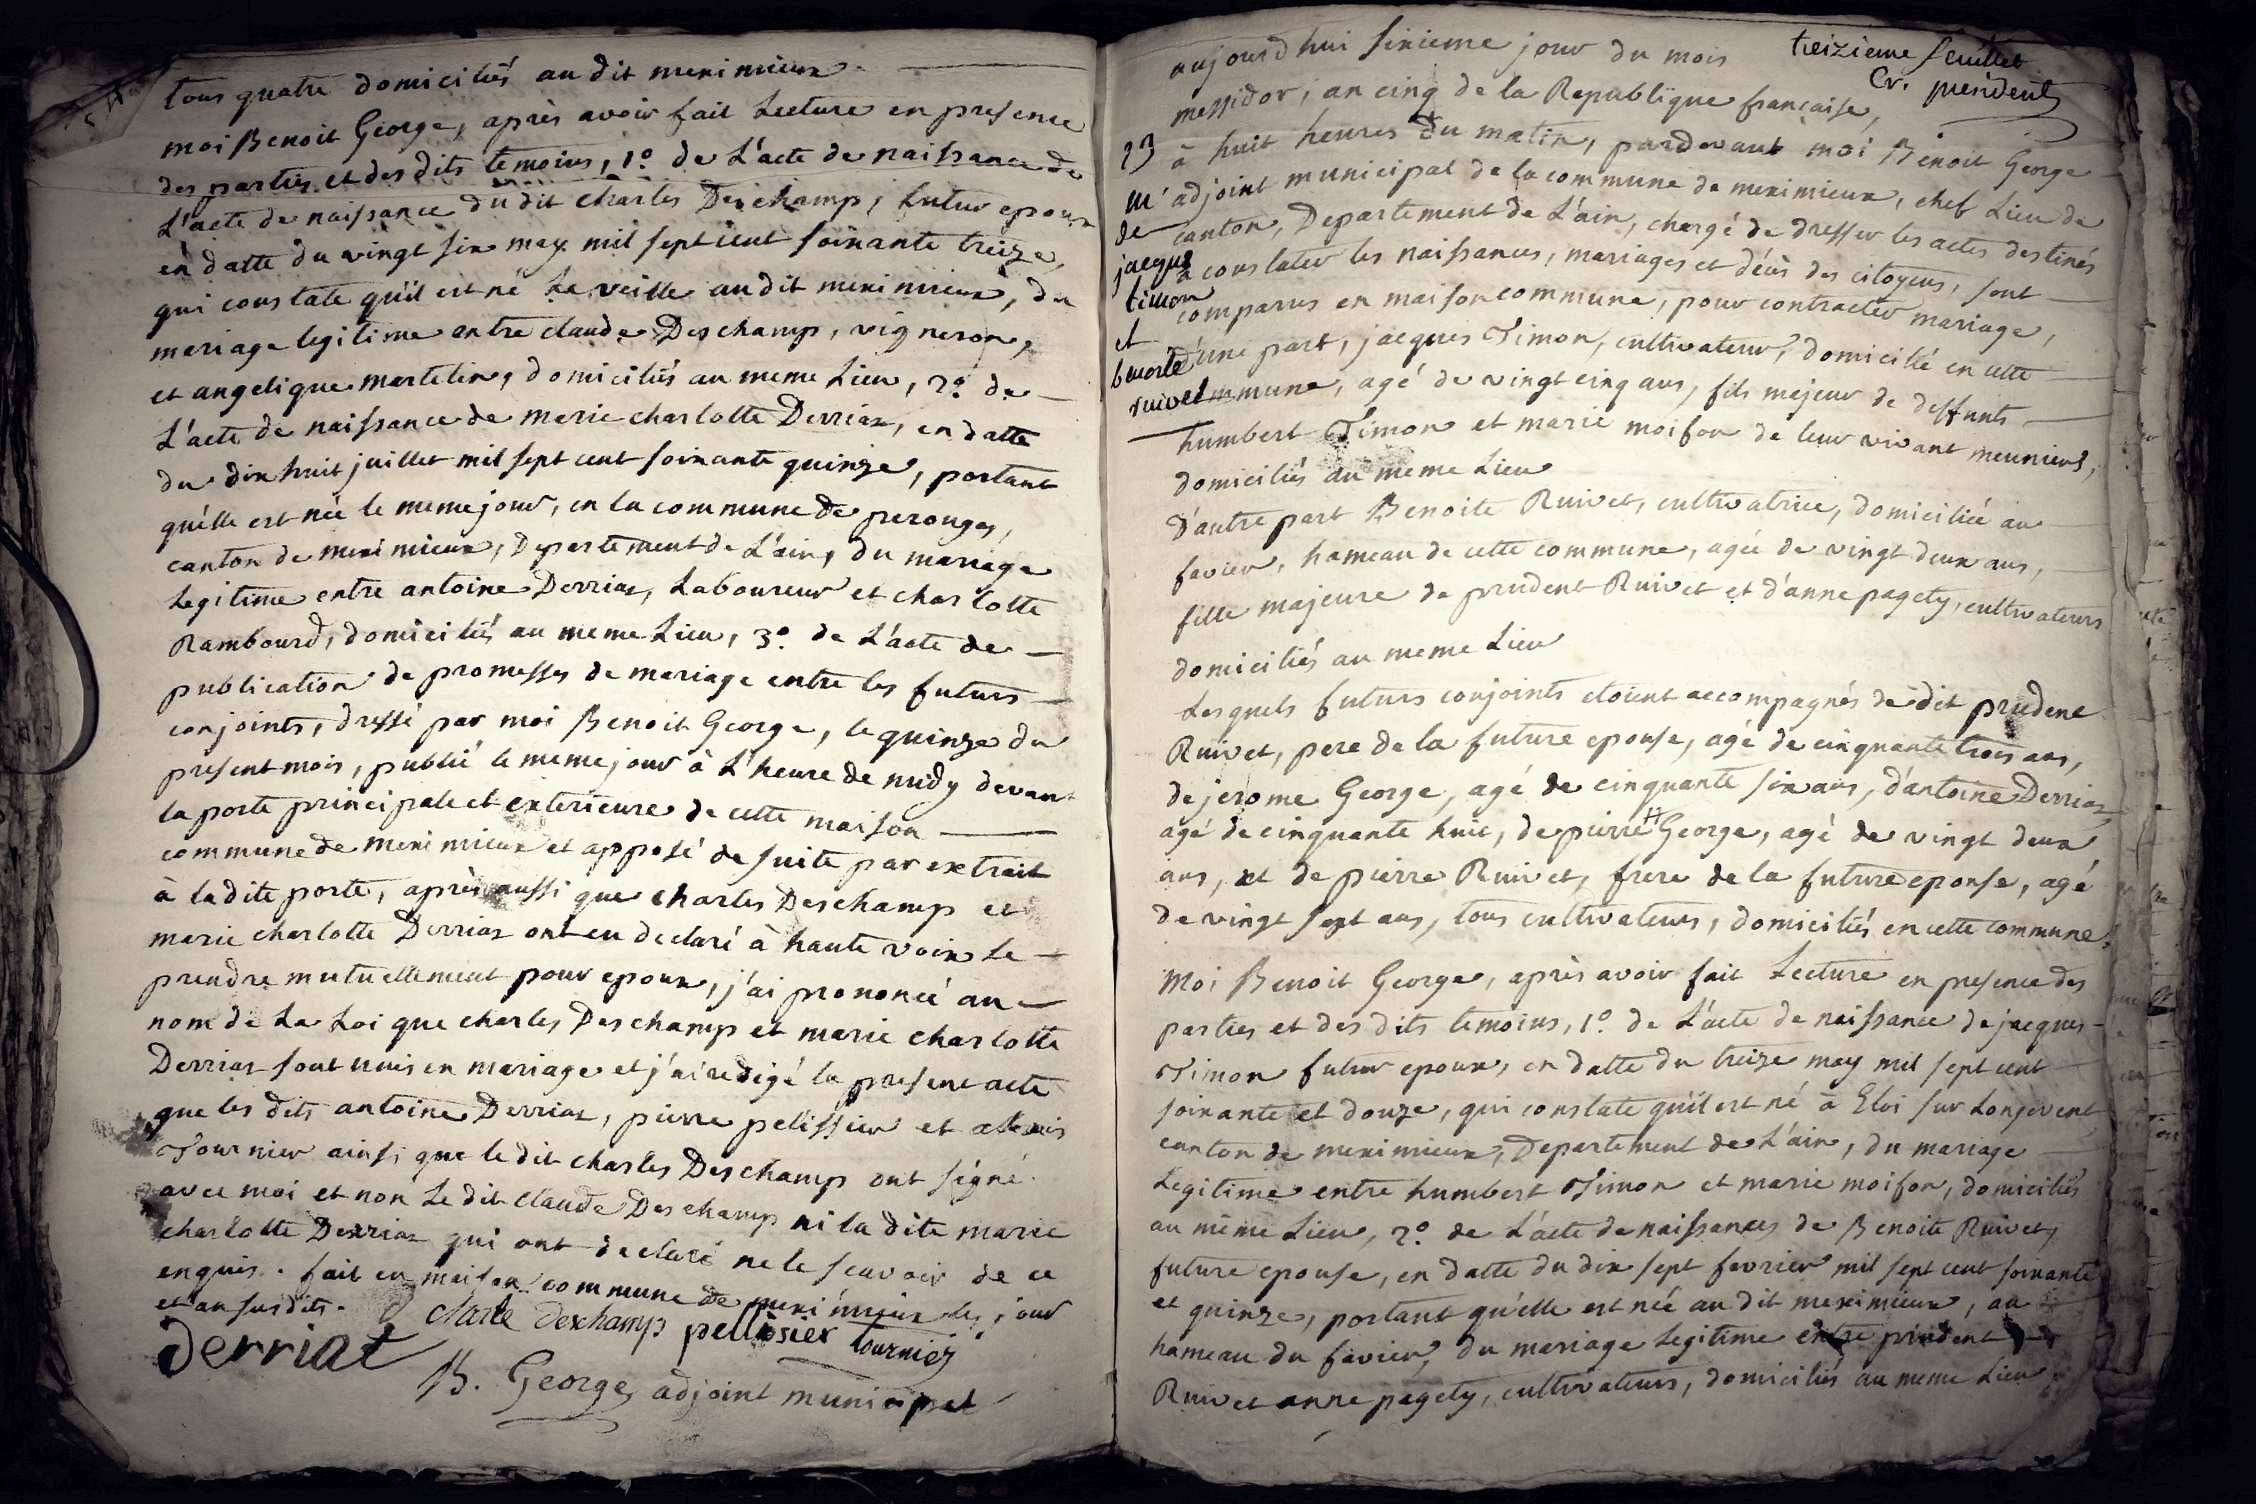 tous quatre domiciliés au dit meximieux
moi Benoit George, après avoir fait Lecture en presence
des parties et des dits temoins, 1.º de L'acte de naissance de
L'acte de naissance du dit charles Deschamp, futur epoux
en datte du vingt six may mil sept cent soixante treize,
qui constate qu'il est né La veille au dit meximieux, du
mariage legitime entre claude Deschamp, vigneron,
et angelique martelin, domiciliés au meme Lieu, 2.º de
L'acte de naissance de marie charlotte Derriaz, en datte
du dix huit juillet mil sept cent soixante quinze, portant
qu'elle est née le meme jour, en la commune de perouges,
canton de meximieux, Departement de L'ain, du mariage
Legitime entre antoine Derriaz, Laboureur et charlotte
Rambourd, domiciliés au meme Lieu, 3.º de L'acte de
publication de promesses de mariage entre les futurs
conjoints, dressé par moi Benoit George, le quinze du
present mois, publié le meme jour à L'heure de midy devant
la porte principale et exterieure de cette maison
commune de meximieux et apposé de suite par extrait
à la dite porte, après aussi que charles Deschamp et
marie charlotte Derriaz ont eu declaré à haute voix se
prendre mutuellement pour epoux, j'ai prononcé au
nom de La Loi que charles Deschamp et marie charlotte
Derriaz sont unis en mariage et j'ai redigé la present acte
que les dits antoine Derriaz, pierre pelissier et alexis
Tournier ainsi que le dit charles Deschamp ont signé
avec moi et non Le dit claude Deschamp ni la dite marie
charlotte Derriaz qui ont declaré ne le scavoir de ce
enquis. fait en maison commune de meximieux les jour
et an susdits.
charle deschamp pellissier tournier
Derriat
B. George, adjoint municipal
treizieme feuillet
Cr. president
aujourd'hui sixieme jour du mois
messidor, an cinq de la Republique francaise,
à huit heures du matin, pardevant moi Benoit George
adjoint municipal de la commune de meximieux, chef Lieu de
canton, Departement de L'ain, chargé de dresser les actes destinés
à constater les naissances, mariages et décès des citoyens, sont
comparus en maison commune, pour contracter mariage,
d'une part, jacques Timon, cultivateur, domicilié en cette
commune, agé de vingt cinq ans, fils majeur de deffunts
humbert Timon et marie moifon de leur vivant meuniers,
domiciliés au meme Lieu
23
m
de
jacques
timon
et
benoite
ruivet
D'autre part Benoite Ruivet, cultivatrice, domiciliée au
favier, hameau de cette commune, agée de vingt deux ans,
fille majeure de prudent Ruivet et d'anne pagety, cultivateurs
domiciliés au meme Lieu
Lesquels futurs conjoints etoient accompagnés de dit prudent
Ruivet, pere de la future epouse, agé de cinquante trois ans,
de jerome George, agé de cinquante six ans, d'antoine Derriaz
agé de cinquante huit, de pierre George, agé de vingt deux
ans, et de pierre Ruivet, frere de la future epouse, agé
de vingt sept ans, tous cultivateurs, domiciliés en cette commune.
Moi Benoit George, après avoir fait Lecture en presence des
parties et des dits temoins, 1.º de L'acte de naissance de jacques
Timon futur epoux, en datte du treize may mil sept cent
soixante et douze, qui constate qu'il est né à Eloi sur
canton de meximieux, Departement de L'ain, du mariage
Legitime entre humbert Timon et marie moifon, domiciliés
au même Lieu, 2.º de L'acte de naissances de Benoite Ruivet,
future epouse, en datte du dix sept fevrier mil sept cent soixante
et quinze, portant qu'elle est née au dit meximieux, au
hameau du favier, du mariage Legitime entre prudent
Ruivet anne pagety, cultivateurs, domiciliés au meme Lieu